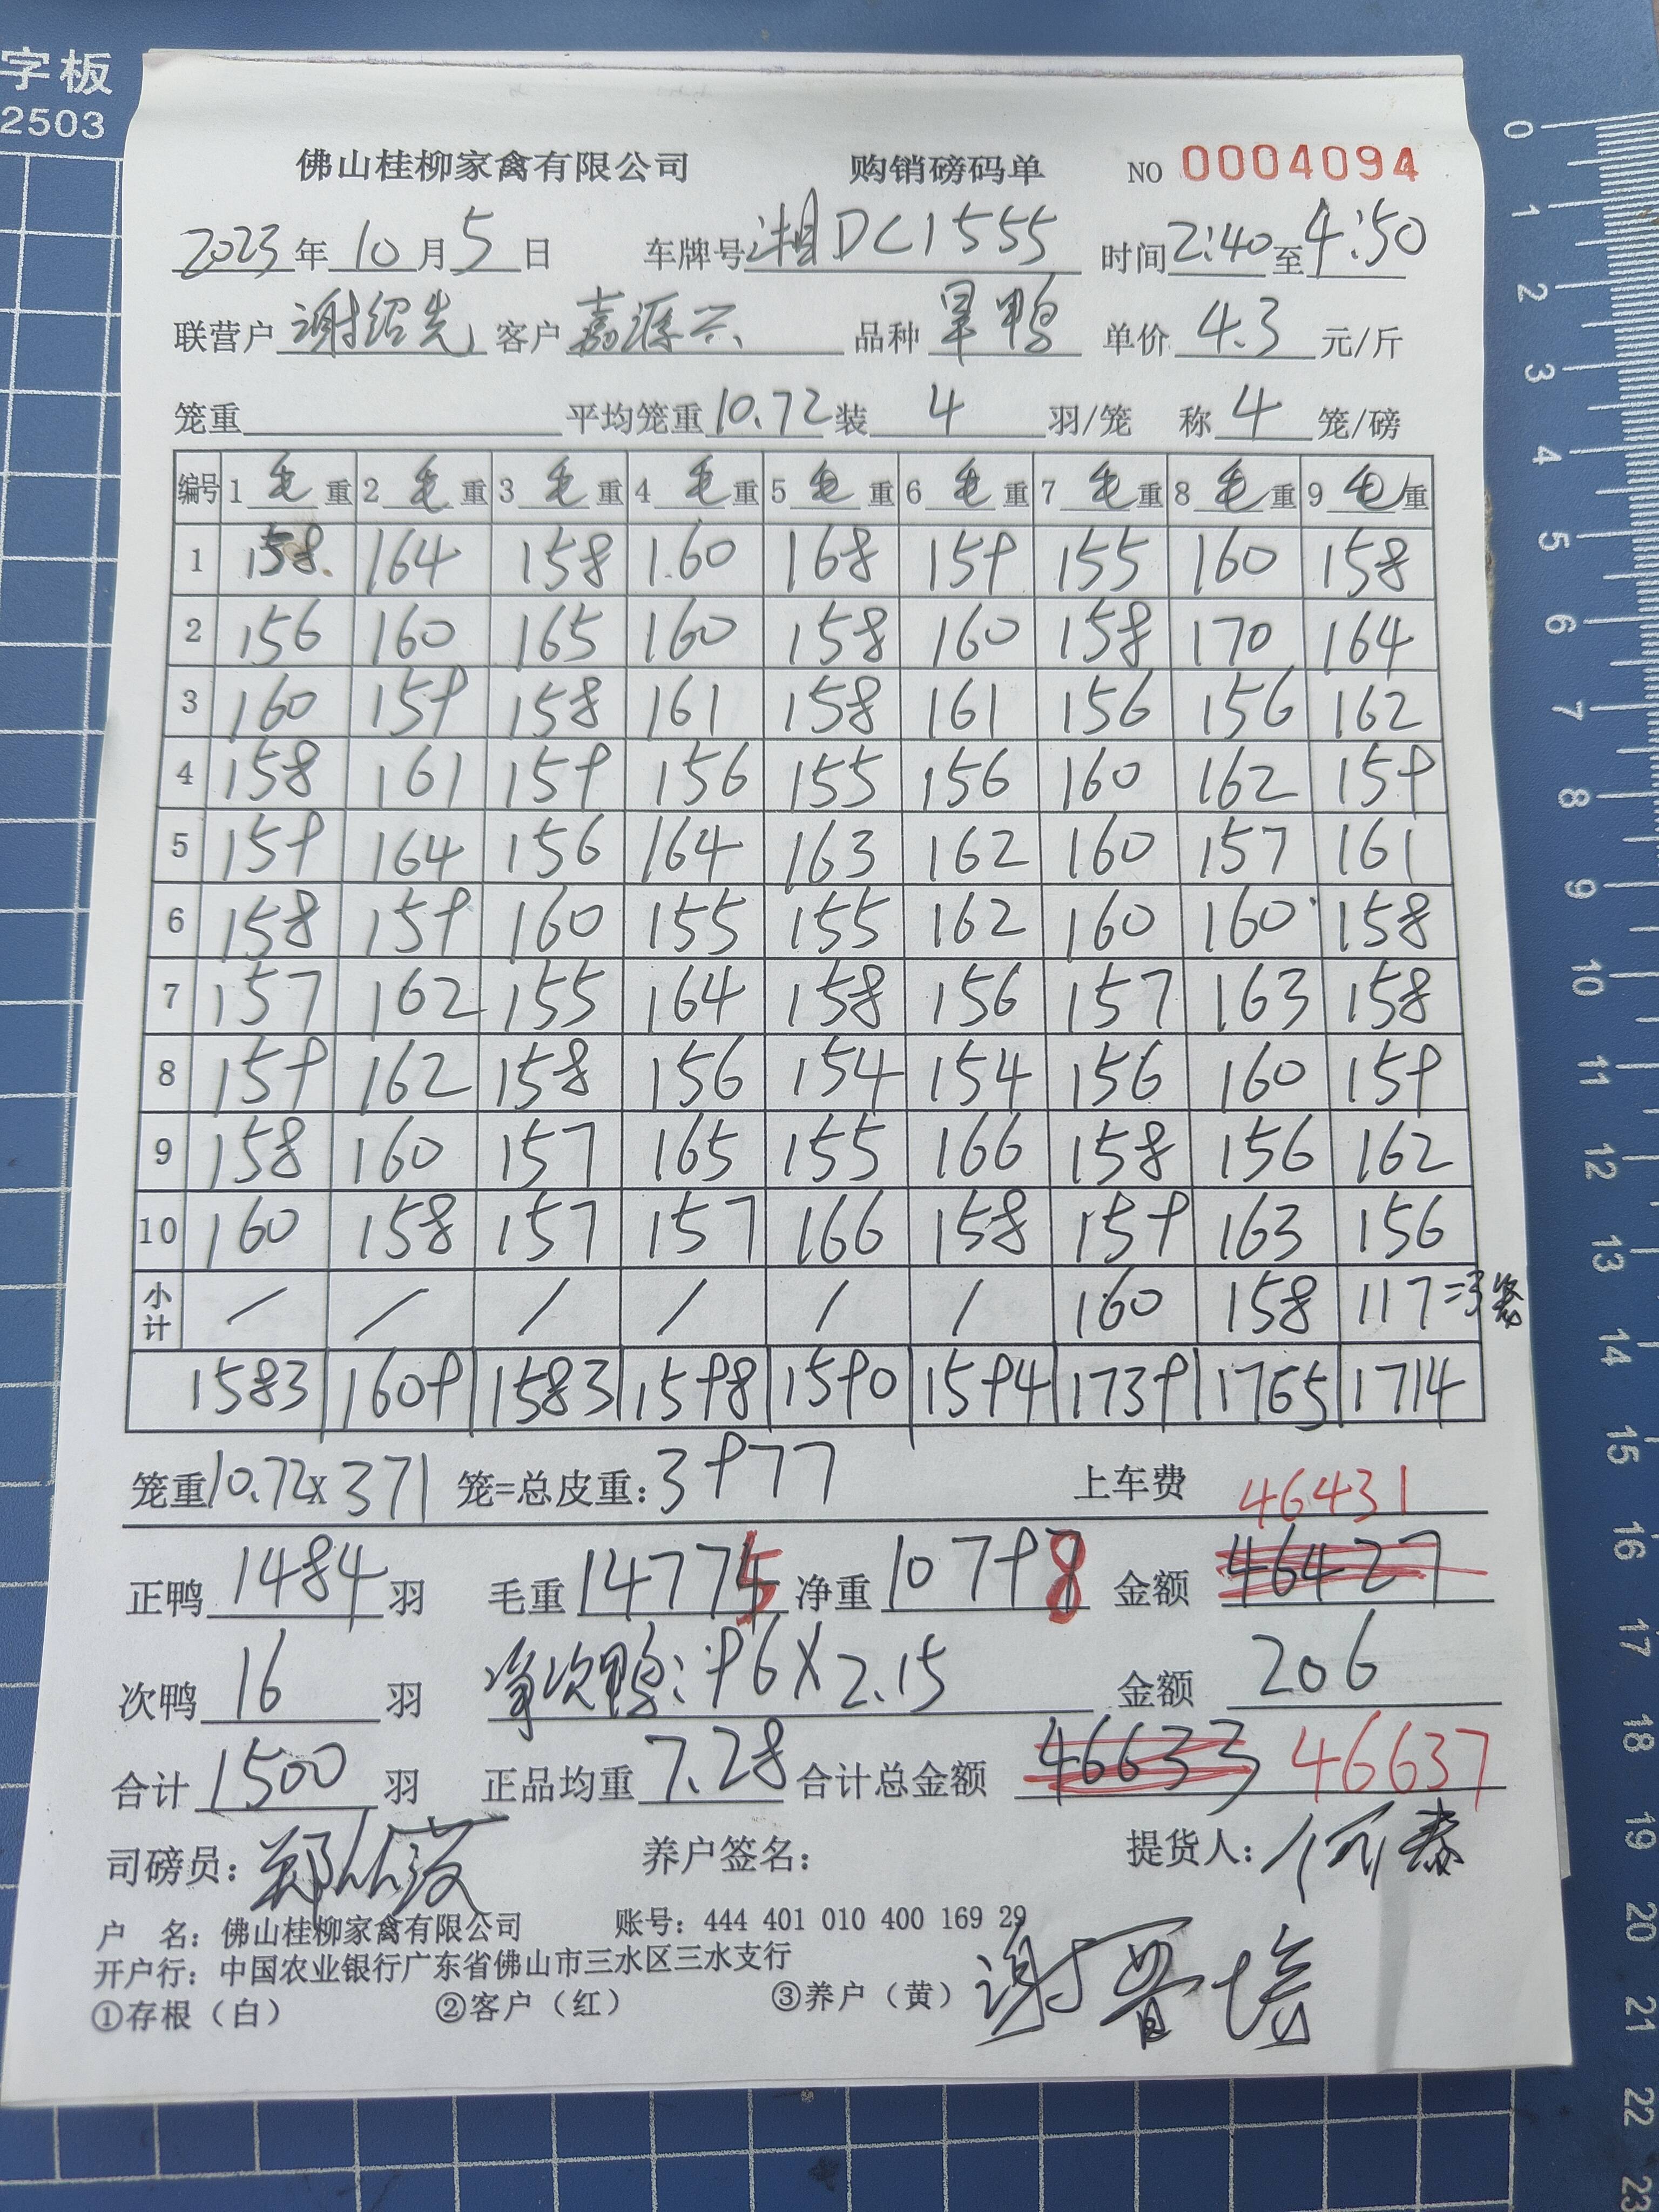 字板
2503
佛山桂柳家禽有限公司 购销磅码单 NO 0004094
2023年10月5日 车牌号湘DC1555 时间2:40至4:50
联营户谢绍先 客户嘉源兴 品种旱鸭 单价4.3元/斤
笼重 平均笼重10.72装4羽/笼 称4笼/磅
编号 1毛重 2毛重 3毛重 4毛重 5毛重 6毛重 7毛重 8毛重 9毛重
1 158 164 158 160 168 159 155 160 158
2 156 160 165 160 158 160 158 170 164
3 160 159 158 161 158 161 156 156 162
4 158 161 159 156 155 156 160 162 159
5 159 164 156 164 163 162 160 157 161
6 158 159 160 155 155 162 160 160 158
7 157 162 155 164 158 156 157 163 158
8 159 162 158 156 154 154 156 160 159
9 158 160 157 165 155 166 158 156 162
10 160 158 157 157 166 158 159 163 156
小计 / / / / / / 160 158 117=3笼
1583 1609 1583 1598 1590 1594 1739 1765 1714
笼重10.72x371笼=总皮重:3977 上车费 46431
正鸭1484羽 毛重14775净重10798 金额46427
次鸭16羽 净次鸭:96X2.15 金额206
合计1500羽 正品均重7.28合计总金额46633 46637
司磅员: 养户签名: 提货人:何泰
户 名:佛山桂柳家禽有限公司 账号:444 401 010 400 169 29
开户行:中国农业银行广东省佛山市三水区三水支行
①存根(白) ②客户(红) ③养户(黄) 谢晋培
0
1
2
3
4
5
6
7
8
9
10
11
12
13
14
15
16
17
18
19
20
21
22
23